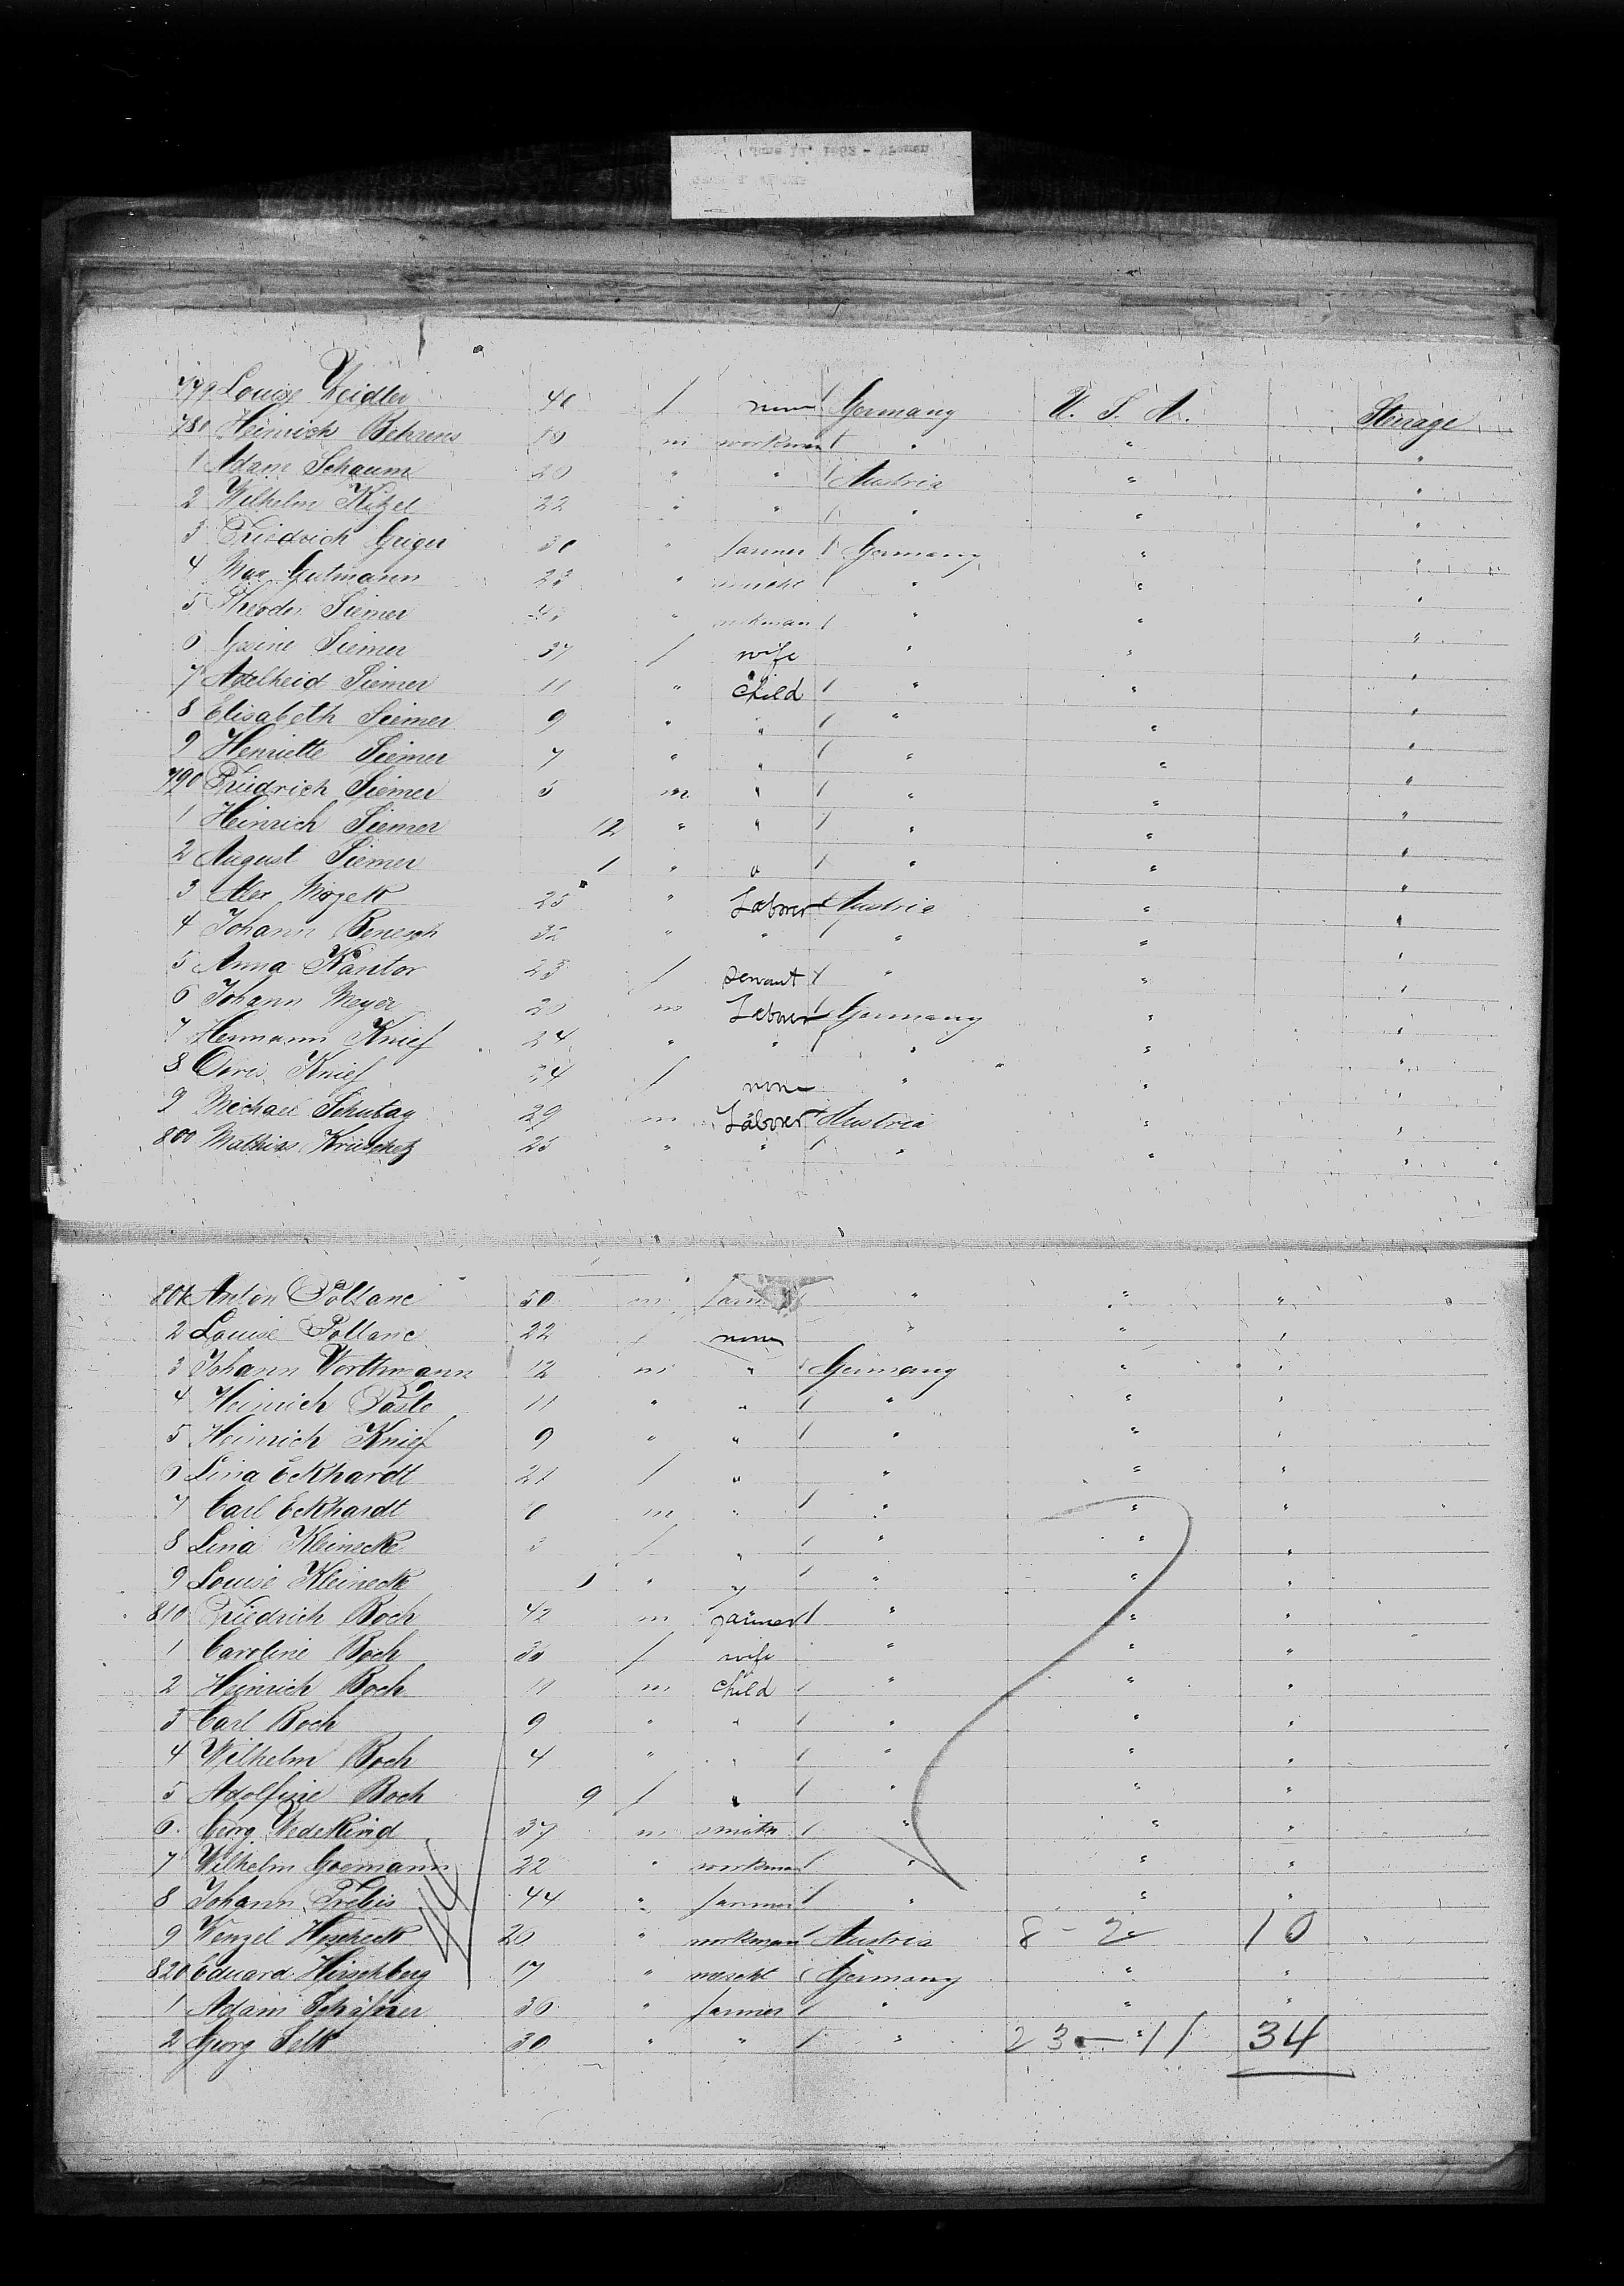 779 Louise Zeidler 40 f none / Germany U. S. A. Steerage
780 Heinrich Behrens 18 m workman / " " "
1 Adam Schaum 20 " " / Austria " "
2 Wilhelm Kitzel 22 " " / " " "
3 Friedrich Geiger 30 " farmer / Germany " "
4 Max Gutmann 23 " / " " "
5 Theodor Siemer " workman / " " "
6 Gesine Siemer 37 f wife " " "
7 Adelheid Siemer 11 " child / " " "
8 Elisabeth Siemer 9 " " / " " "
9 Henriette Siemer 7 " " / " " "
790 Friedrich Siemer 5 m " / " " "
1 Heinrich Siemer 12 " " / " " "
2 August Siemer 1 " " / " " "
3 Alex 25 " Laborer / Austria " "
4 Johann Benesch 32 " " / " " "
5 Anna Kantor 23 f servant / " " "
6 Johann Meyer 20 m Laborer / Germany " "
7 Hermann Knief 24 " " / " " "
8 Doris Knief 24 f none " " "
9 Michael 29 m Laborer / Austria " "
800 Mathias 25 " " / " " "
801 Anton Pollane 50 m farm " " "
2 Louise Pollane 22 f none " " "
3 Johann Worthmann 12 m " / Germany " "
4 Heinrich 11 " " / " " "
5 Heinrich Knief 9 " " / " " "
6 Lina Eckhardt 21 f " " " "
7 Carl Eckhardt 6 m " / " " "
8 Lina Kleinecke 3 f " / " " "
9 Louise Kleinecke " " / " " "
810 Friedrich Boch 42 m farmer / " " "
1 Caroline Boch f wife " " "
2 Heinrich Boch 11 m child / " " "
3 Carl Boch 9 " " / " " "
4 Wilhelm Boch 4 " " / " " "
5 Adolfine Boch 9 f " / " " "
6 Georg Wedekind 37 m smith / " " "
7 Wilhelm Goemann 22 " workman / " " "
8 Johann 44 " farmer / " " "
9 Wenzel 20 " workman / Austria 8 - 2 10
820 Eduard Hirschberg 17 " / Germany " "
1 Adam Schäfer 36 " farmer / " " "
2 Georg Selk 30 " " / " 23 - 11 34